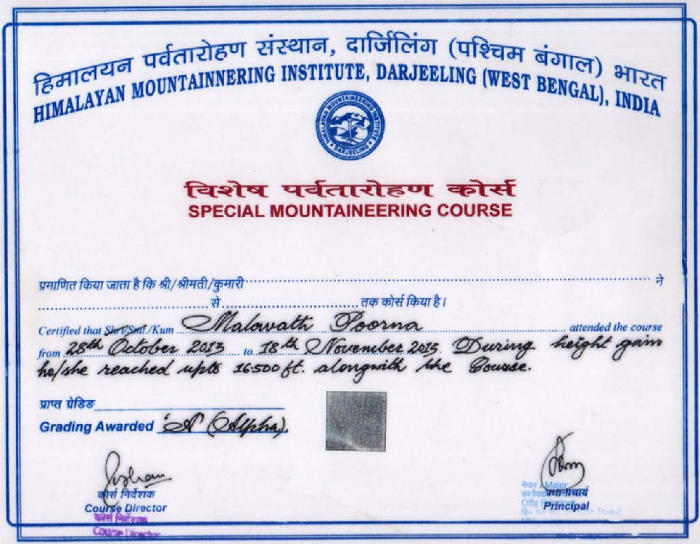 हिमालयन पर्वतारोहण संस्थान, दार्जिलिंग (पश्चिम बंगाल) भारत
HIMALAYAN MOUNTAINNERING INSTITUTE, DARJEELING (WEST BENGAL), INDIA
HIMALAYAN MOUNTAINEERING INSTITUTE
DARJEELING
विशेष पर्वतारोहण कोर्स
SPECIAL MOUNTAINEERING COURSE
प्रमाणित किया जाता है कि श्री/श्रीमती/कुमारी ने
से तक कोर्स किया है।
Certified that Shri/Smt./Kum Malavath Poorna attended the course
from 28th October 2013 to 18th November 2013 During height gain
he/she reached upto 16500 ft. alongwith the Course.
प्राप्त ग्रेडिंग
Grading Awarded 'A' (Alpha).
कोर्स निर्देशक
Course Director
कोर्स निर्देशक
Course Director
मेजर / Major
प्रधानाचार्य
Offg
Principal